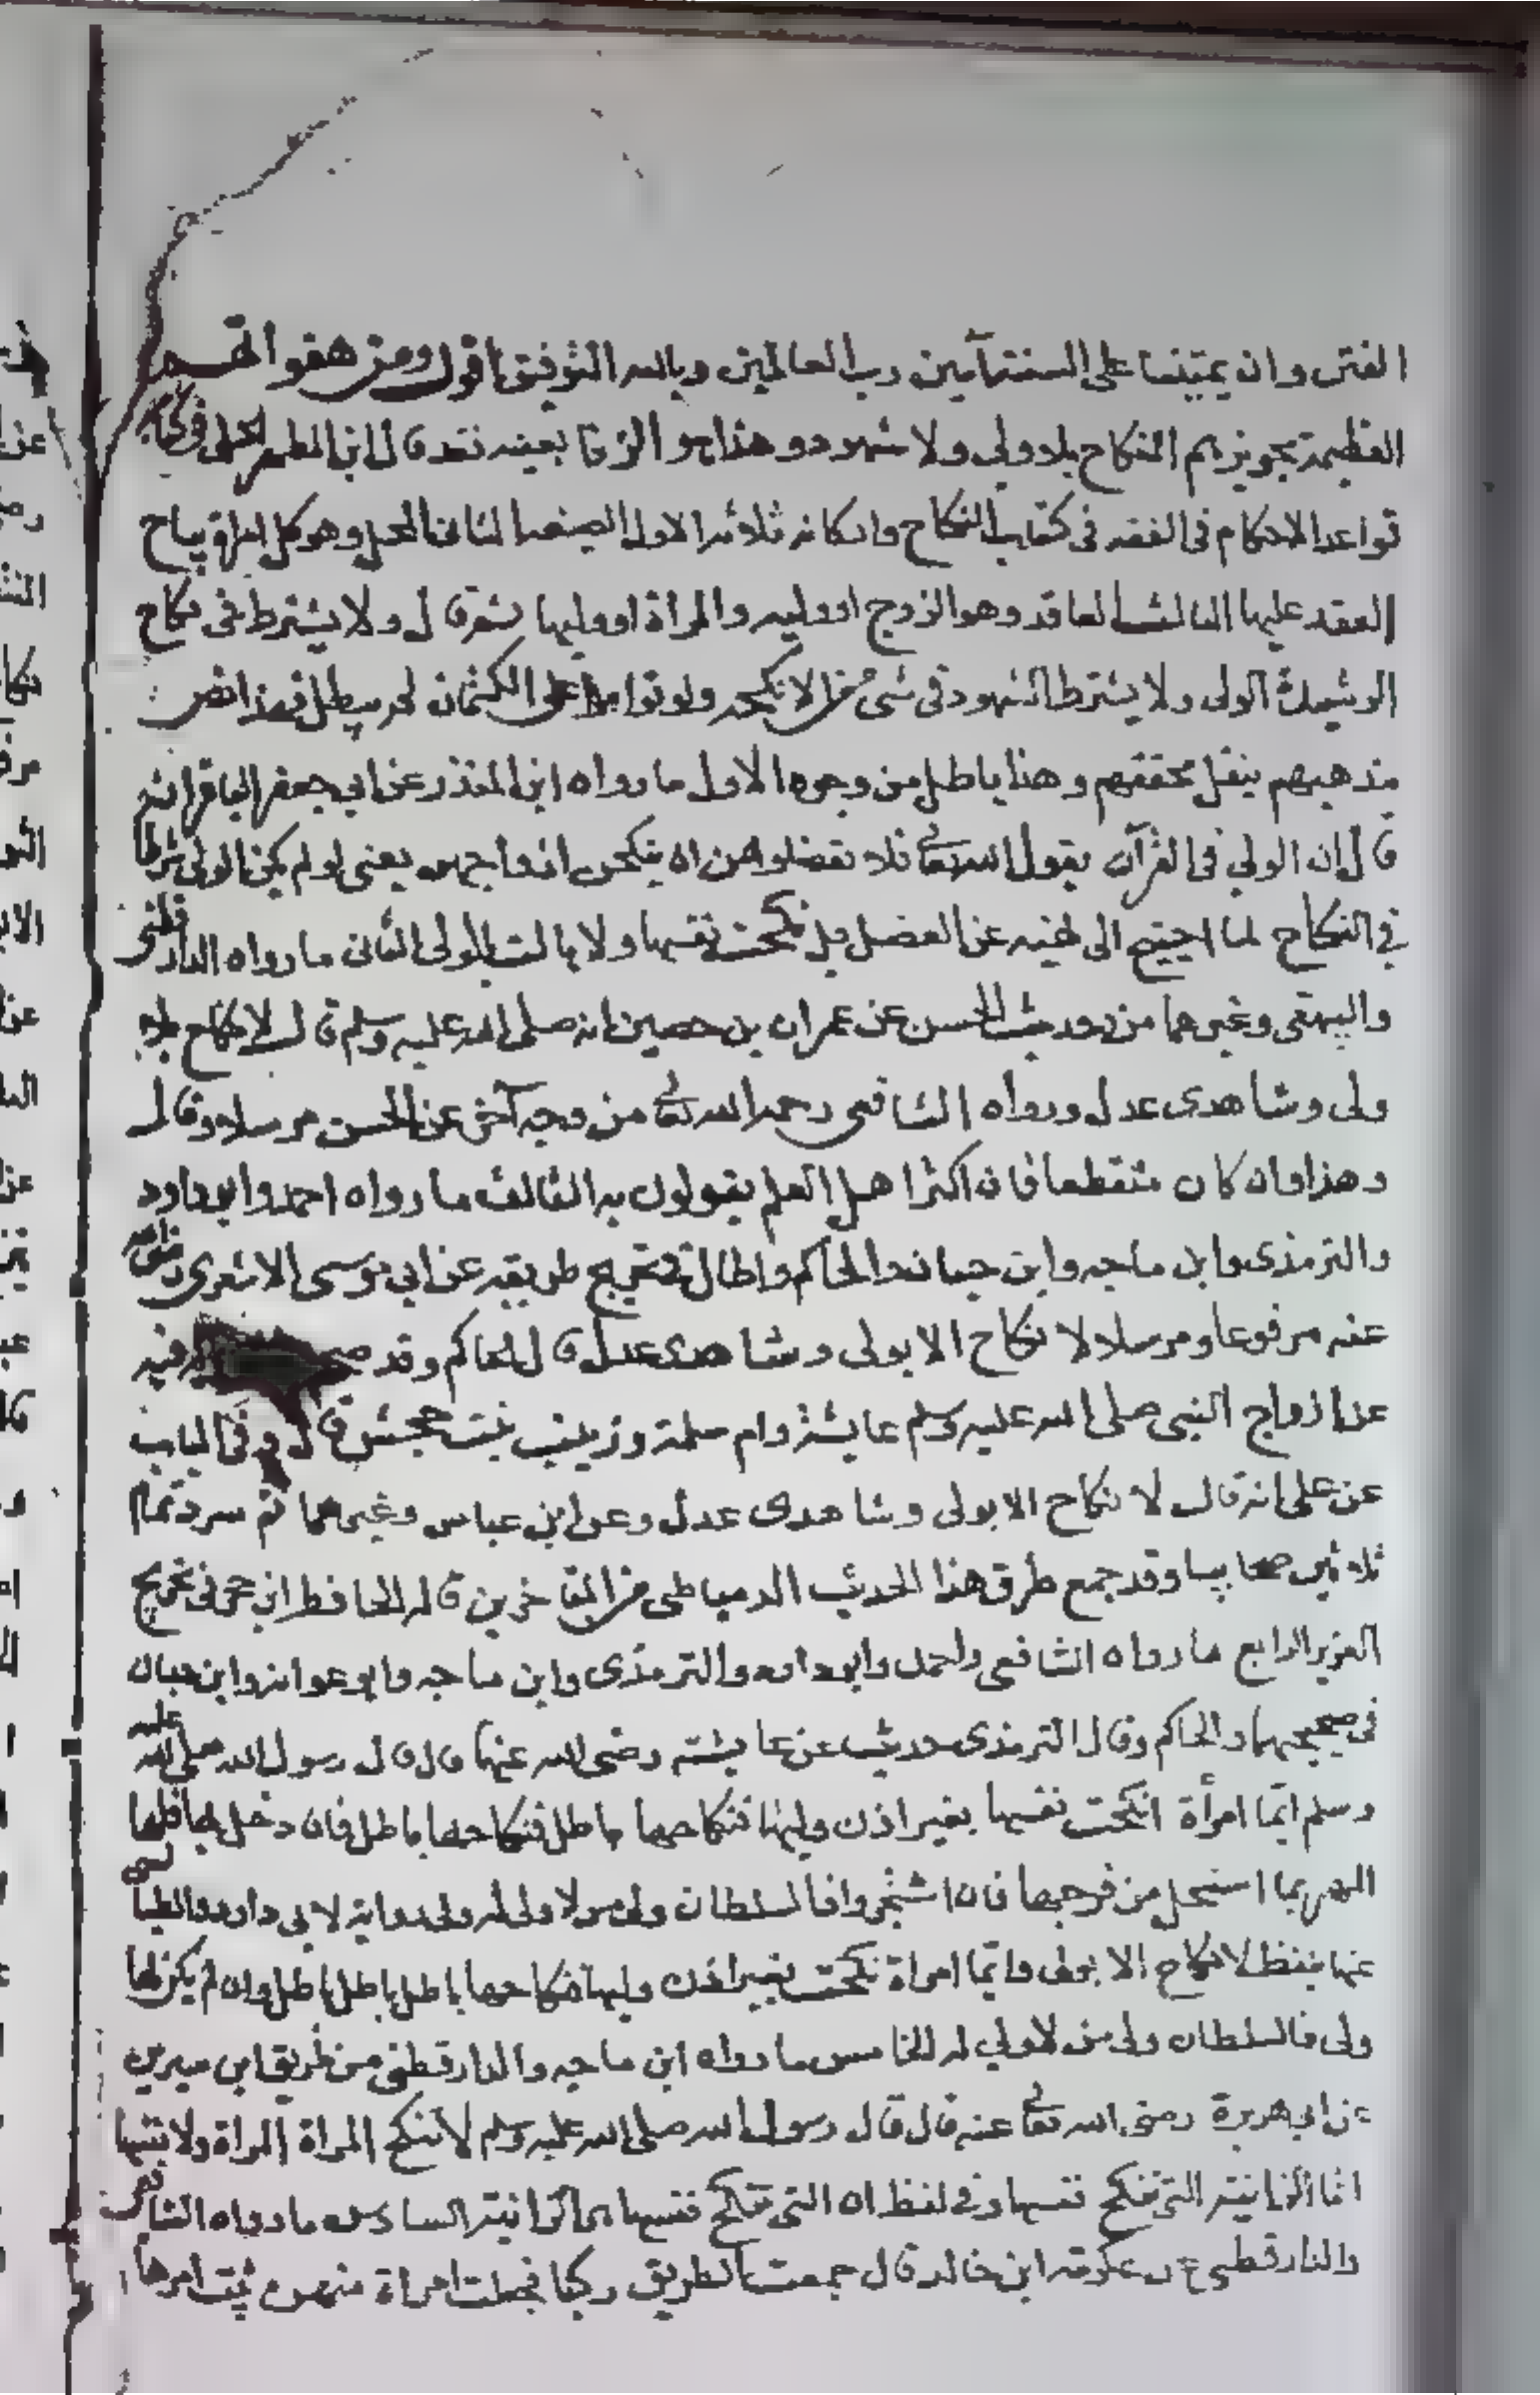 الفتن وان يميتنا على السنة آمين رب العالمين وبالله التوفيق اقول ومن هفواتهم
العظيمة تجويزهم النكاح بلا ولي ولا شهود وهذا هو الزنا بعينه فقد قال ابن المطهر الحلي في كتابه
قواعد الاحكام في الفقه في كتاب النكاح واركانه ثلاثة الاول الصيغة الثاني المحل وهو كل امراة يباح
العقد عليها الثالث العاقد وهو الزوج او وليه والمراة او وليها ثم قال ولا يشترط في نكاح
الرشيدة الولى ولا يشترط الشهود في شئ من الانكحة ولو تواموا على الكتمان لم يبطل فهذا نص
مذهبهم بنقل محققهم وهذا باطل من وجوه الاول ما رواه ابن المنذر عن ابي جعفر الباقر انه
قال ان الولي في القرآن يقول الله تعالى فلا تعضلوهن ان ينكحن ازواجهن يعني لو لم يكن الولي شرطا
في النكاح لما احتيج الى نهيه عن العضل بل نكحت نفسها ولا بالت بالولى الثاني ما رواه الدارقطني
والبيهقي وغيرهما من حديث الحسن عن عمران بن حصين انه صلى الله عليه وسلم قال لا نكاح الا
ولى وشاهدى عدل ورواه الشافعي رحمه الله تعالى من وجه آخر عن الحسن مرسلا وقال
وهذا وان كان منقطعا فان اكثر اهل العلم يقولون به الثالث ما رواه احمد وابو داود
والترمذى وابن ماجه وابن حبان والحاكم واطال في تخريج طريقه عن ابي موسى الاشعرى رضي الله
عنه مرفوعا ومرسلا لا نكاح الا بولى وشاهدى عدل قال الحاكم وقد صح فيه
عن ازواج النبي صلى الله عليه وسلم عايشة وام سلمة وزينب بنت جحش قال وفي الباب
عن على انه قال لا نكاح الا بولى وشاهدى عدل وعن ابن عباس وغيرهما ثم سرد تمام
ثلاثين صحابيا وقد جمع طرق هذا الحديث الدمياطي من المتاخرين قاله الحافظ ابن حجر في تخريج
العزيز الرابع ما رواه الشافعي واحمد وابو داود والترمذى وابن ماجه وابو عوانه وابن حبان
في صحيحهما والحاكم وقال الترمذى حديث عن عايشته رضى الله عنها قال قال رسول الله صلى الله عليه
وسلم ايما امرأة انكحت نفسها بغير اذن وليها فنكاحها باطل فنكاحها باطل فان دخل بها فلها
المهر بما استحل من فرجها فان اشتجروا فالسلطان ولى من لا ولى له وفي رواية لابي داود والطيالسي
عنها بلفظ لا نكاح الا بولى وايما امراة نكحت بغير اذن وليها فنكاحها باطل باطل باطل وان لم يكن لها
ولى فالسلطان ولى من لا ولي له الخامس ما رواه ابن ماجه والدارقطني من طريق ابن سيرين
عن ابي هريرة رضى الله تعالى عنه قال قال رسول الله صلى الله عليه وسلم لا تنكح المراة المراة ولا نفسها
انما الزانية التي تنكح نفسها وفي لفظ ان التي تنكح نفسها هي الزانية السادس ما رواه الشافعي
والدارقطني عن عكرمة ابن خالد قال جمعت الطريق ركبا فجعلت امراة منهن ثيب امرها